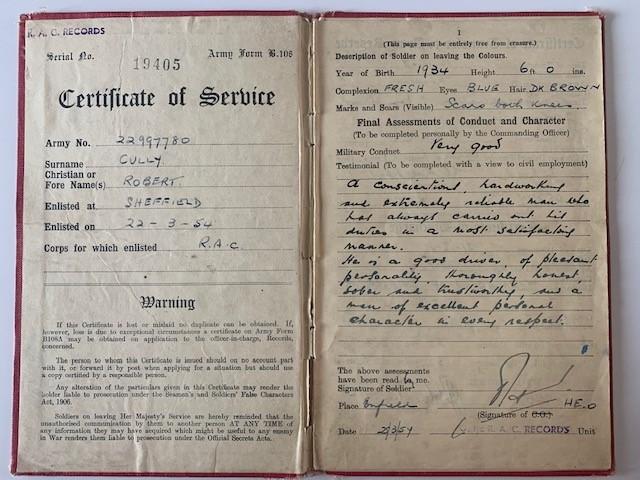 R. A. C. RECORDS
Serial No. 19405 Army Form B.108
Certificate of Service
Army No. 22997780
Surname CULLY
Christian or
Fore Name(s) ROBERT.
Enlisted at SHEFFIELD
Enlisted on 22-3-54
Corps for which enlisted R.A.C.
Warning
If this Certificate is lost or mislaid no duplicate can be obtained. If,
however, loss is due to exceptional circumstances a certificate on Army Form
B108A may be obtained on application to the officer-in-charge, Records,
concerned.
The person to whom this Certificate is issued should on no account
part with it, or forward it by post when applying for a situation but should use a
copy certified by a responsible person.
Any alteration of the particulars given in this Certificate may render the
holder liable to prosecution under the Seamen's and Soldiers' False Characters
Act, 1906.
Soldiers on leaving Her Majesty's Service are hereby reminded that the
unauthorised communication by them to another person AT ANY TIME of
any information they may have acquired which might be useful to any enemy
in War renders them liable to prosecution under the Official Secrets Acts.
1
(This page must be entirely free from erasure.)
Description of Soldier on leaving the Colours.
Year of Birth 1934 Height 6 ft 0 ins.
Complexion FRESH Eyes BLUE Hair DK BROWN
Marks and Scars (Visible) Scars both knees.
Final Assessments of Conduct and Character
(To be completed personally by the Commanding Officer)
Military Conduct Very good
Testimonial (To be completed with a view to civil employment)
A conscientious, hardworking
and extremely reliable man who
has always carried out his
duties in a most satisfactory
manner.
He is a good driver, of pleasant
personality, thoroughly honest,
sober and trustworthy, and a
man of excellent personal
character in every respect.
The above assessments
have been read to me.
Signature of Soldier
Place Enfield
(Signature of C.O.)
Date R.A.C. RECORDS Unit